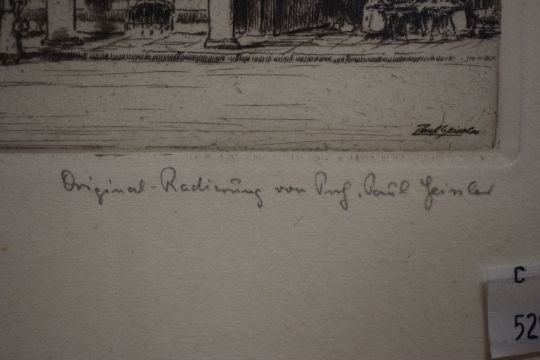 Paul Geissler
Original-Radierung von Prof. Paul Geissler
C
529